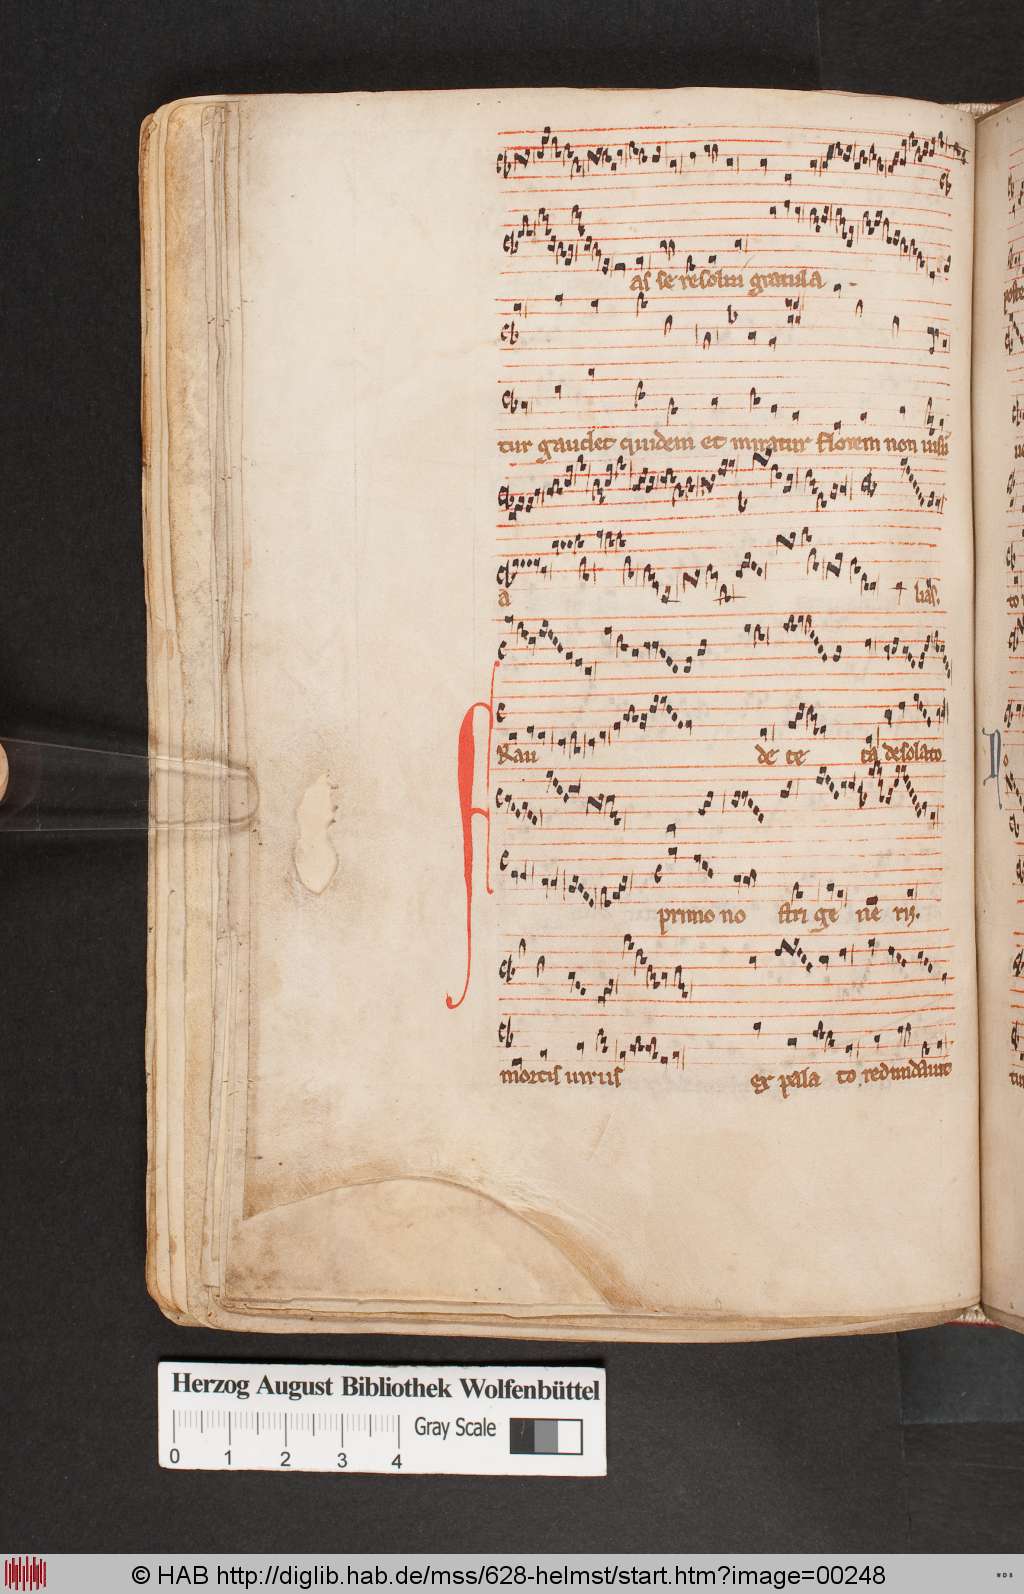 as se resolui gratula
tur gaudet quidem et miratur florem non uisu
a lias.
Rau de te ta desolato
primo no stri ge ne ris.
mortis uirus ex pala to redundauit
Herzog August Bibliothek Wolfenbüttel
Gray Scale
0 1 2 3 4
© HAB http://diglib.hab.de/mss/628-helmst/start.htm?image=00248